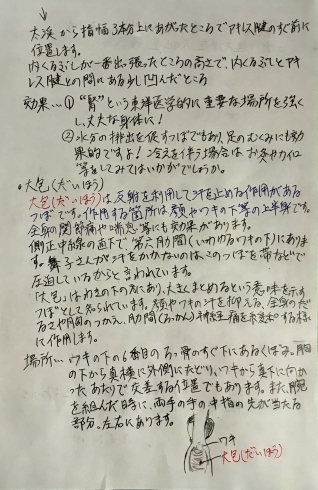 太渓から指幅3本分上にあがったところでアキレス腱のすぐ前に
位置します。
内くるぶしが一番出っ張ったところの高さで、内くるぶしとアキ
レス腱との間にある少し凹んだところ
効果…①"腎"という東洋医学的に重要な場所を強く
し、丈夫な身体に!
②水分の排出を促すつぼでもあり、足のむくみにも効
果的ですよ!冷えを伴う場合はお灸やカイロ
等をしてみてはいかがでしょうか。
・大包(だいほう)
大包(だいほう)は反射を利用して汗を止める作用がある
つぼです。作用する箇所は顔やワキの下等の上半身です。
全身の関節痛や喘息等にも効果があります。
側正中線の直下で第六肋間(いわゆるワキの下)にありま
す。舞子さんが汗をかかないのはこのつぼを帯などで
圧迫しているからと言われています。
「大包」はわきの下の先にあり、大きくまとめるという意味を示す
つぼとして知られています。顔やワキの汗を抑える、全身のだ
るさや胸のつかえ、肋間(ろっかん)神経痛を改善する様
に作用します。
場所…ワキの下の6番目のろっ骨のすぐ下にあるくぼみ。胸
の下から真横に外側にたどり、ワキから真下に向か
ったあたりで交差する位置でもあります。また、腕
を組んだ時に、両手の手の中指の先が当たる
部分。左右にあります。
ワキ
大包(だいほう)